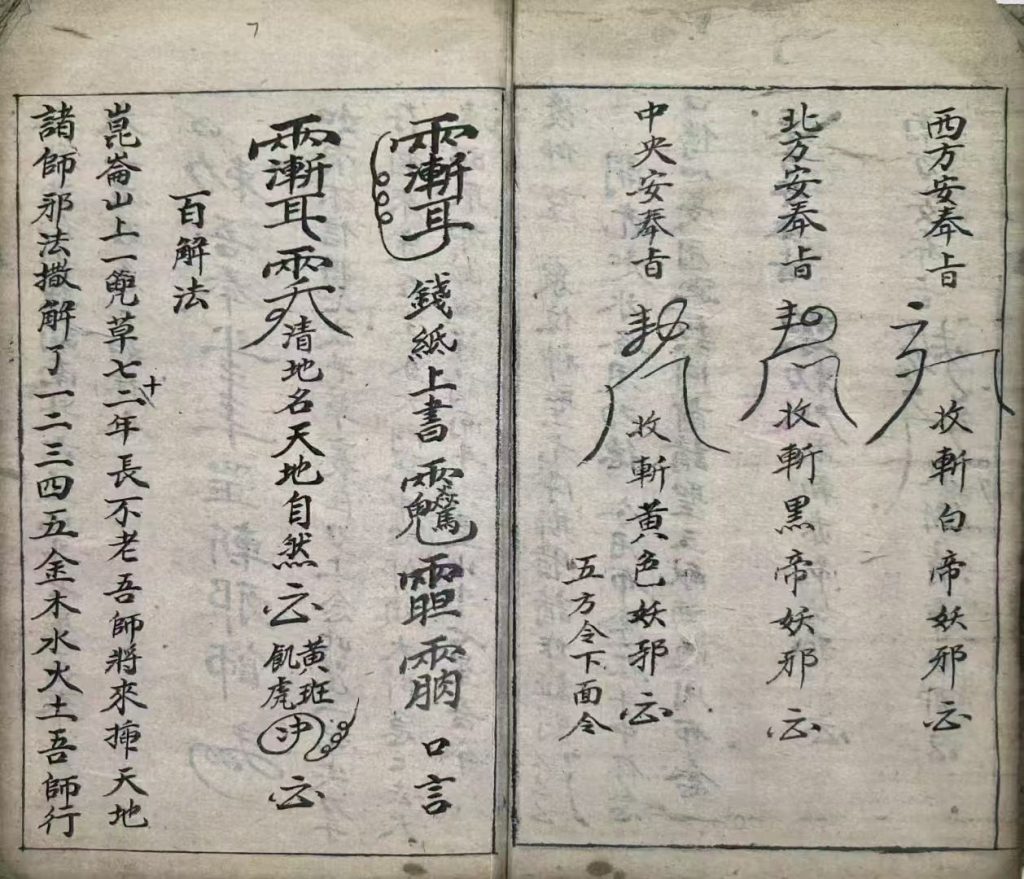 西方安奉旨 收斬白帝妖邪
北方安奉旨 收斬黑帝妖邪
中央安奉旨 收斬黃色妖邪
五方令下面令
錢紙上書 口言
清地名天地自然 黃斑飢虎
百解法
崑崙山上一蔸草七十二年長不老吾師將來揷天地
諸師邪法撒解了一二三四五金木水火土吾師行